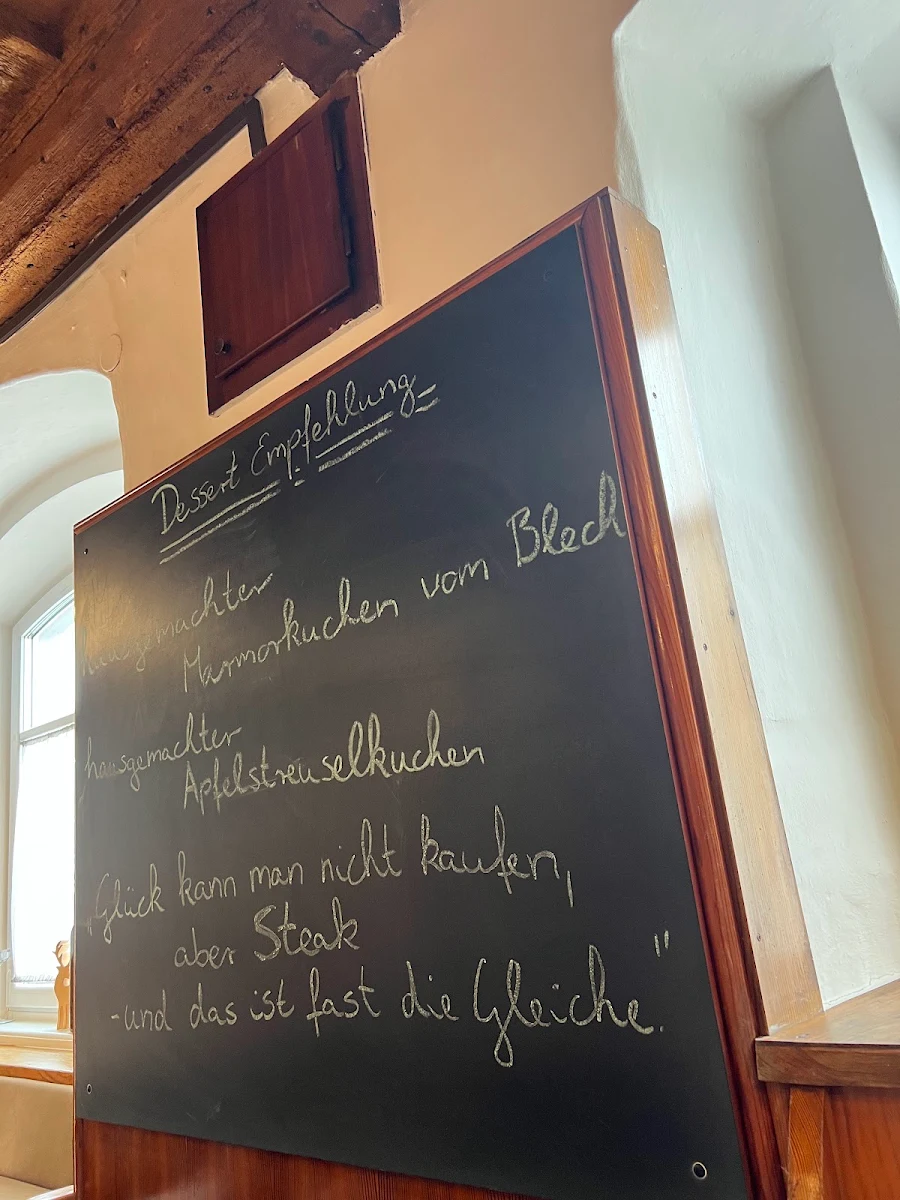 Dessert Empfehlung
hausgemachter
Marmorkuchen vom Blech
hausgemachter
Apfelstreuselkuchen
„Glück kann man nicht kaufen,
aber Steak
-und das ist fast die Gleiche."